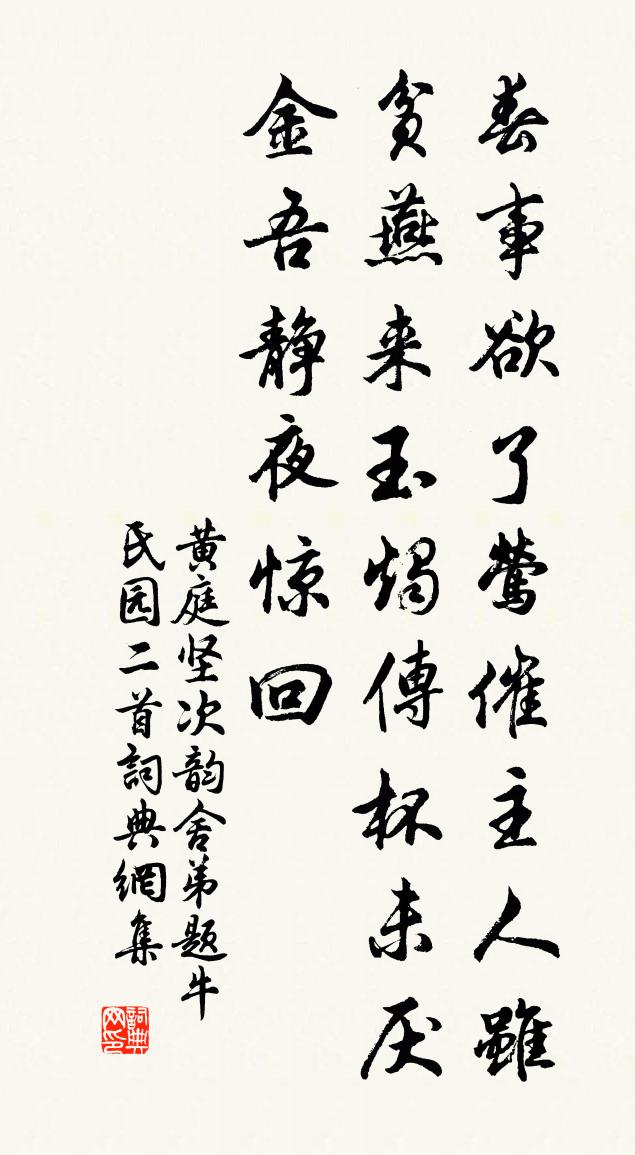 春事欲了莺催主人雖
贫燕来玉燭傳杯未厌
金吾静夜惊回
黄庭坚次韵舍弟题牛
民园二首詞典網集
詞典网印